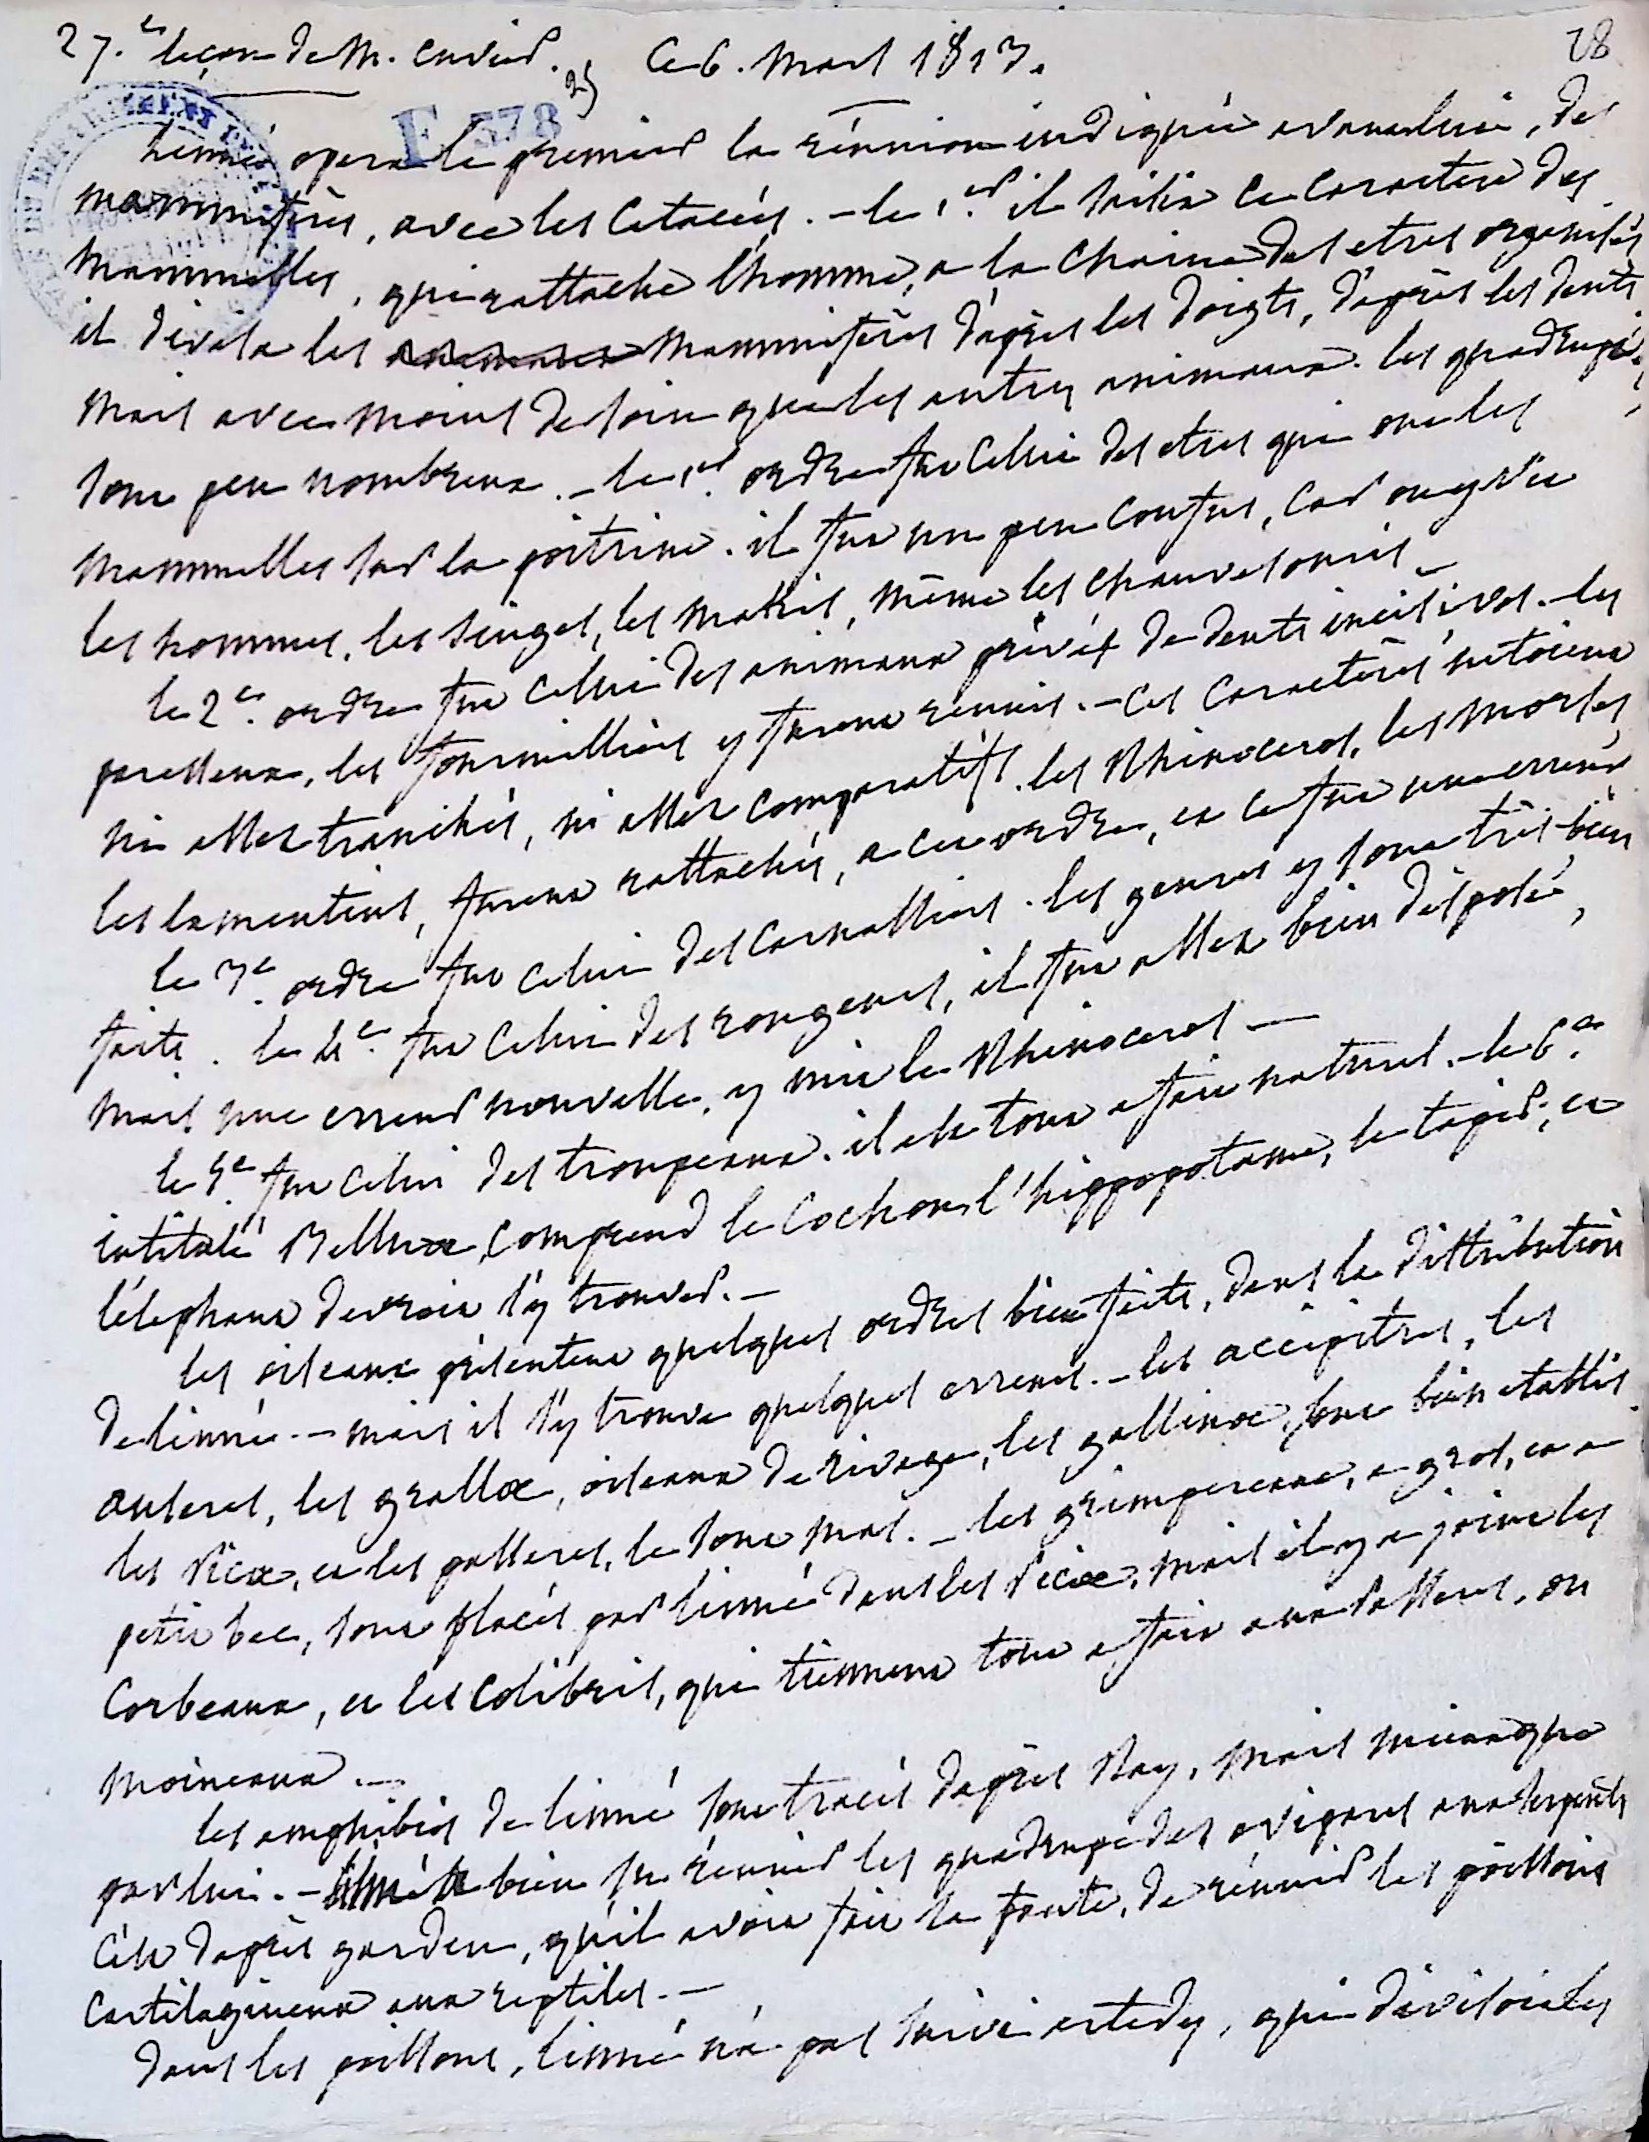 27.e leçon de M. Cuvier. Ce 6. Mars 1813.
28
25
F 378
Linné opera le premier la réunion indiquée avant lui, des
mammifères, avec les Cétacées. - le 1.er il saisit ce caractere des
mammelles, qui rattache l'homme, a la chaine des etres organisés
il divisa les animaux mammifères d'après les doigts, d'après les dents
mais avec moins de soin que les autres animaux. les quadrupèdes
sont peu nombreux. - le 1.er ordre fut celui des etres qui ont les
mammelles sur la poitrine. il fut un peu confus, car on y vit
les hommes, les singes, les makis, même les chauvesouris -
le 2.e ordre fut celui des animaux privés de dents incisives. - les
paresseux, les fourmilliers y furent reunis. - ces caractères n'etoient
ni assez tranchés, ni assez comparatifs. les Rhinoceros, les morses
les lamentins, furent rattachés, a cet ordre, et ce fut une erreur
le 3.e ordre fut celui des carnassiers. les genres y sont très-bien
faits. le 4.e fut celui des rongeurs, il fut assez bien disposé,
mais une erreur nouvelle, y mit le Rhinoceros -
le 5.e fut celui des troupeaux. il est tout a fait naturel. - le 6.e
intitulé Belluæ, comprend le cochon, l'hippopotame, le tapir; et
l'éléphant devroit s'y trouver. -
les oiseaux présentent quelques ordres bien faits, dans la distribution
de linné. - mais il s'y trouve quelques erreurs. - les accipitres, les
anseres, les grallæ, oiseaux de rivage, les gallinæ, sont bien etablis
les Picæ, et les passeres, le sont mal. - les grimpereaux, a gros, et a
petit bec, sont placés par linné dans les Picæ, mais il y a joint les
Corbeaux, et les colibris, qui tiennent tout a fait aux Passeres, ou
moineaux. -
les amphibies de linné sont tracés d'après Ray, mais mieux que
par lui. - bien su réunir les quadrupedes ovipares aux serpents
c'est d'après garden, qu'il avoit fait la faute, de réunir les poissons
cartilagineux aux reptiles. -
dans les poissons, linné n'a pas suivi artedy, qui divisoit les